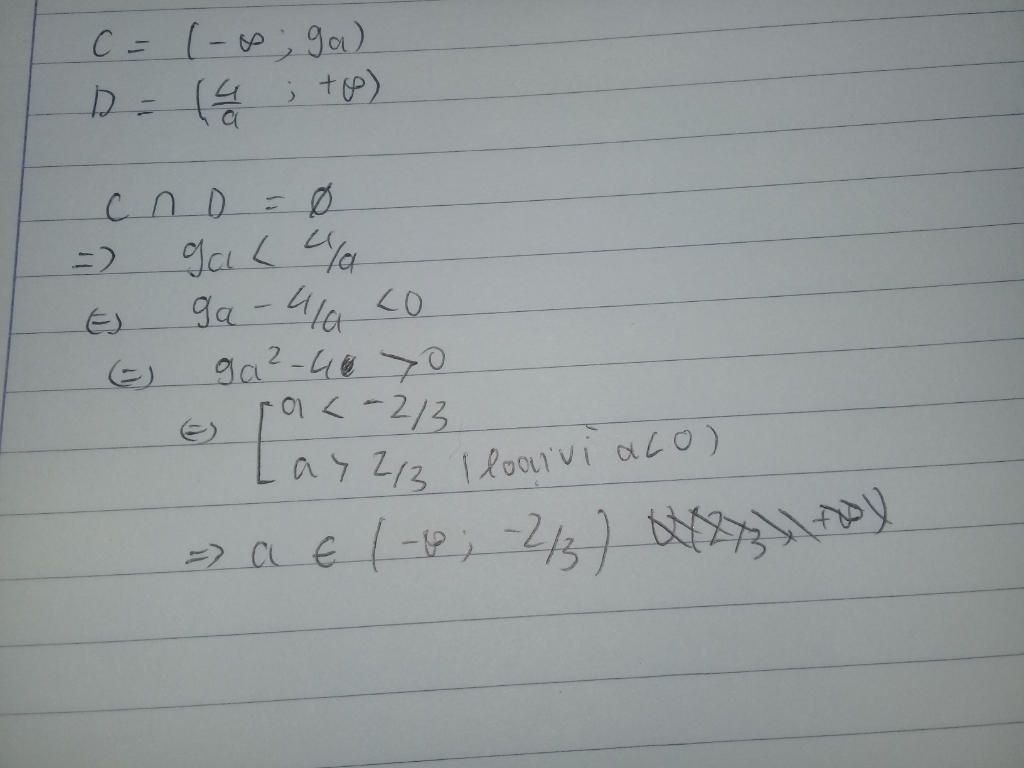 C = (-∞; 9a)
D = (4/a ; +∞)
C ∩ D = ∅
=> 9a < 4/a
<=> 9a - 4/a < 0
<=> 9a² - 4 > 0
<=> [ a < -2/3
a > 2/3 (loại vì a < 0)
=> a ∈ (-∞; -2/3)